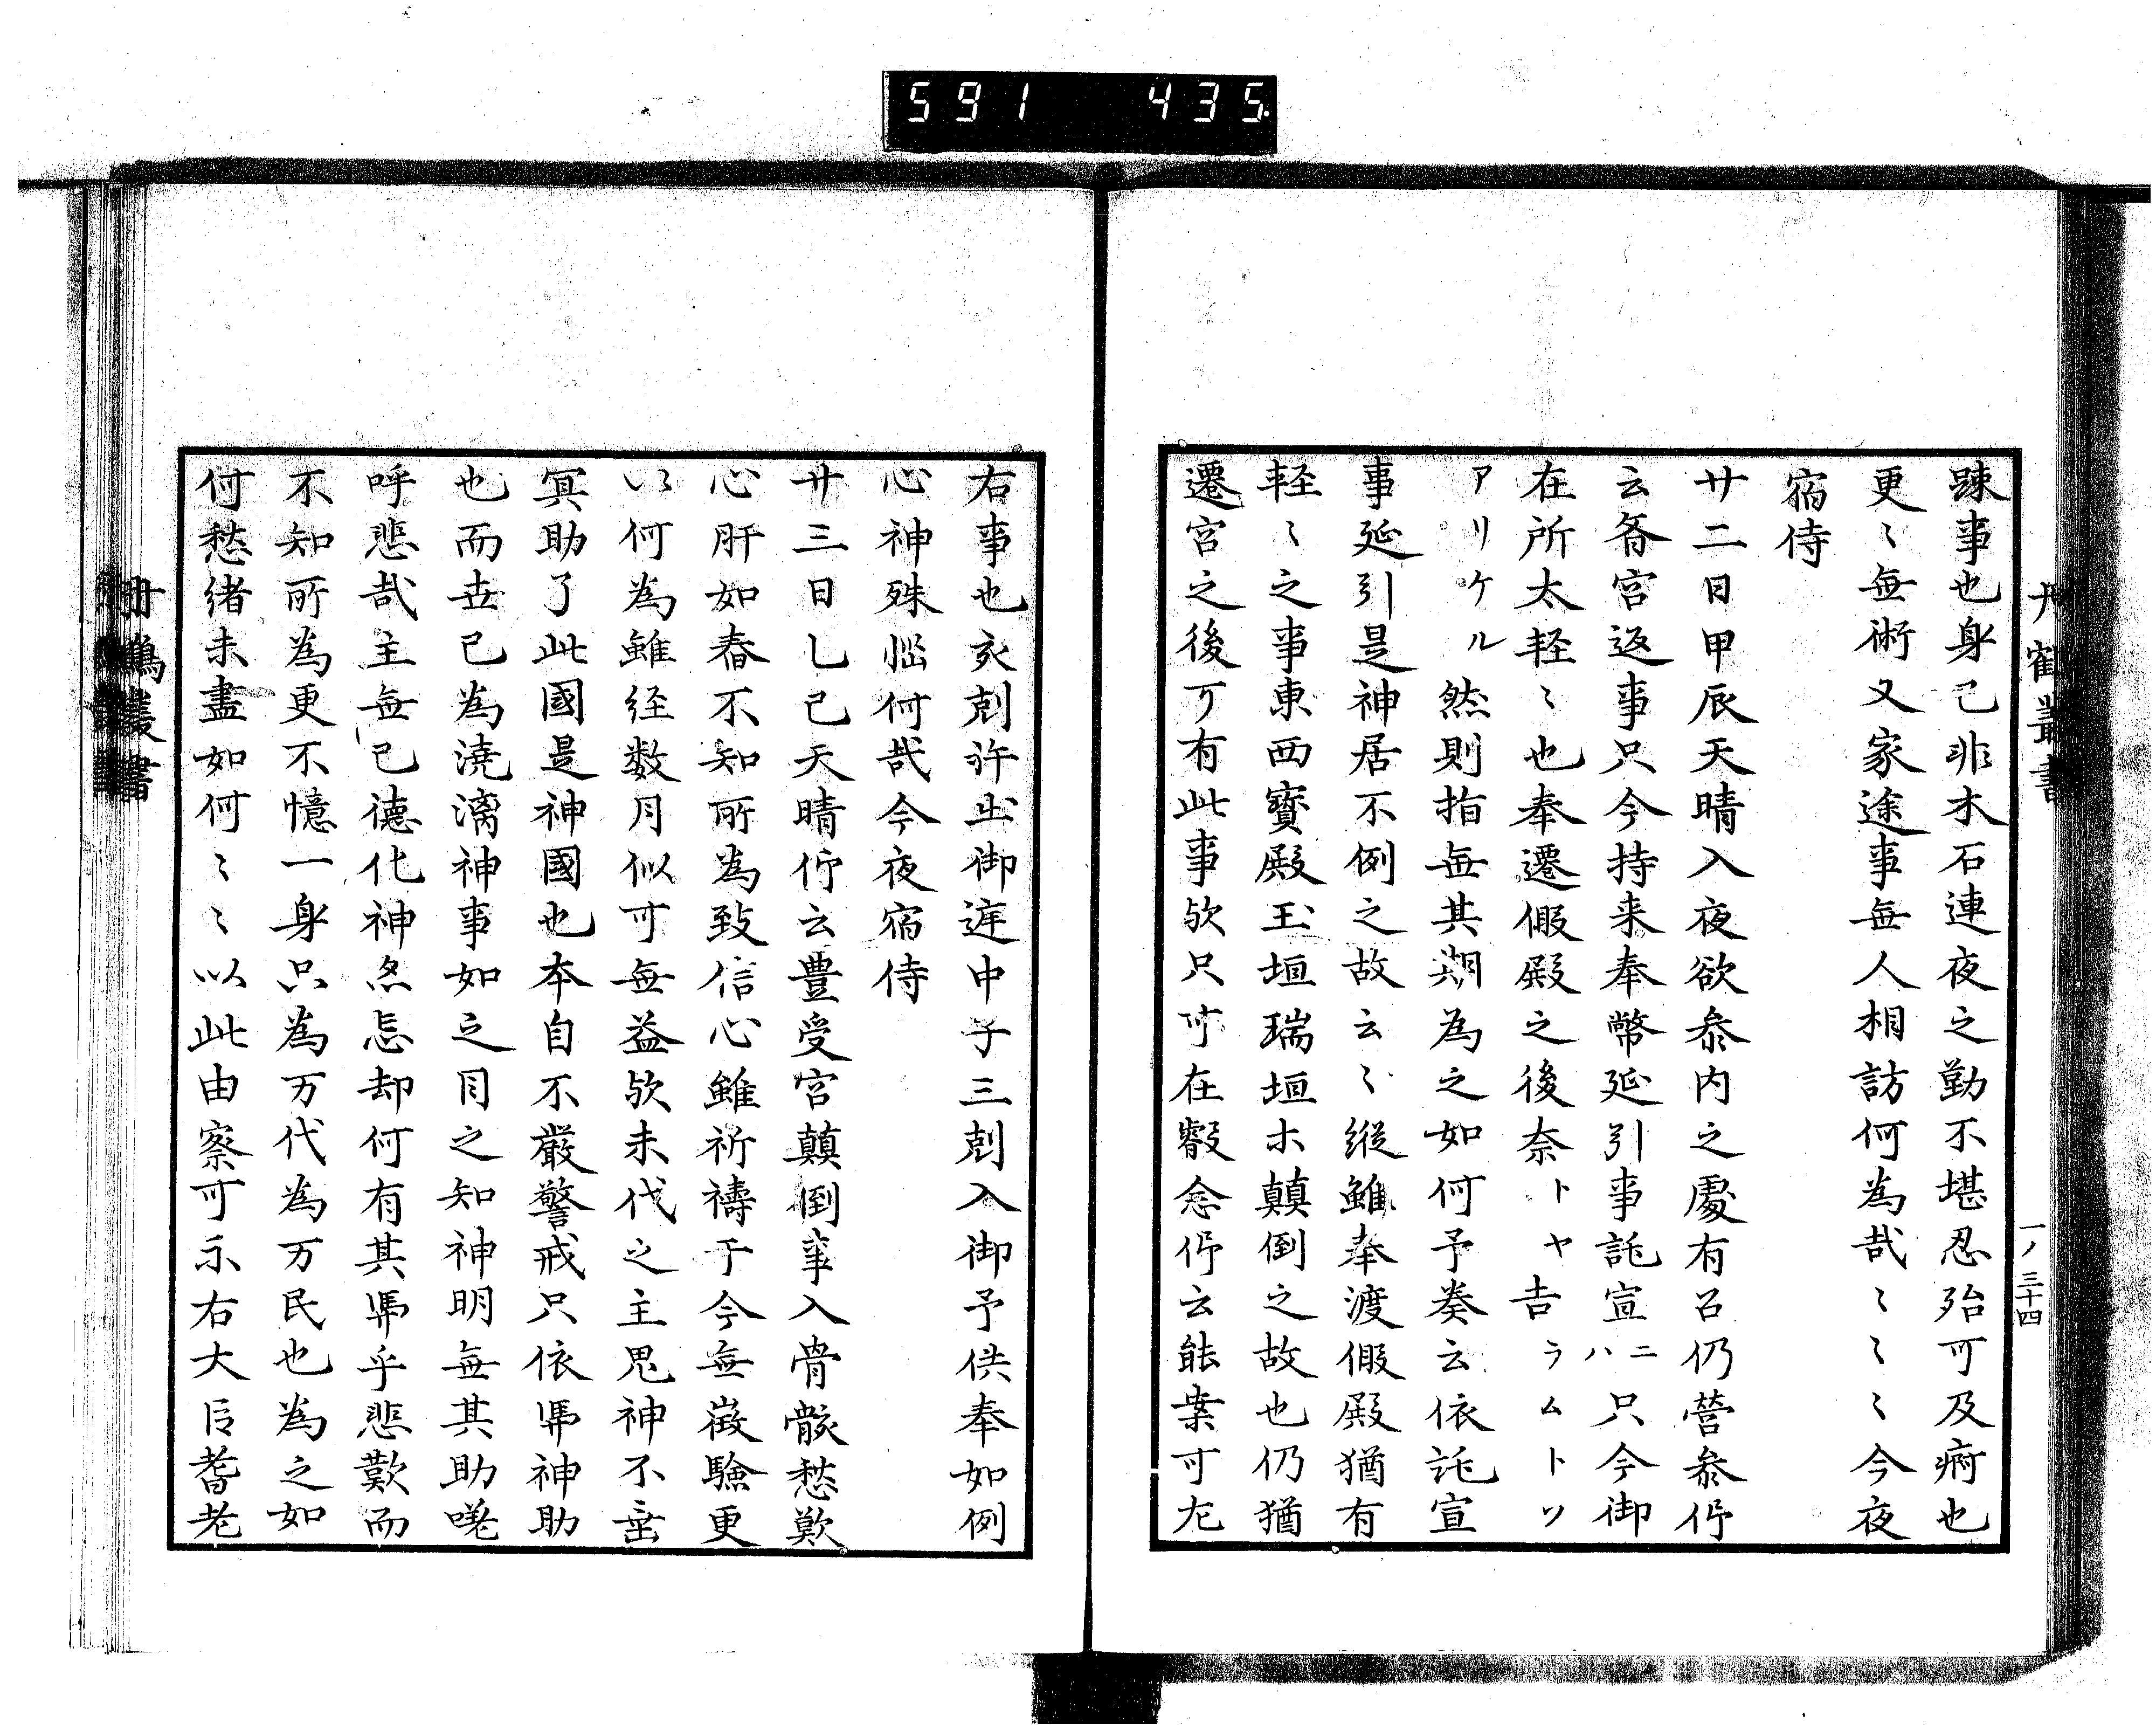 591 435
丹鶴叢書
一ノ三十四
踈事也身已非木石連夜之勤不堪忍殆可及痾也
更〻無術又家途事無人相訪何為哉〻〻〻今夜
宿侍
廿二日甲辰天晴入夜欲叅内之處有召仍營叅仰
云各宮返事只今持来奉幣延引事託宣ニハ只今御
在所太軽〻也奉遷假殿之後奈トヤ吉ラムトソ
アリケル然則指無其期為之如何予奏云依託宣
事延引是神居不例之故云〻縦雖奉渡假殿猶有
軽〻之事東西寳殿玉垣瑞垣ホ顛倒之故也仍猶
遷宮之後可有此事欤只可在叡念仰云能案可左
右事也亥剋許出御迬中子三剋入御予供奉如例
心神殊惱何哉今夜宿侍
廿三日乙巳天晴仰云豊受宮顛倒事入骨髄愁歎
心肝如舂不知所為致信心雖祈禱于今無徴驗更
以何為雖経数月似可無益欤末代之主思神不垂
冥助了此國是神國也本自不厳警戒只依憑神助
也而世已為澆漓神事如之目之知神明無其助嗟
呼悲哉主無已德化神忽忘却何有其憑乎悲歎而
不知所為更不憶一身只為万代為万民也為之如
何愁緒未盡如何〻〻以此由察可示右大臣耆老
丹鶴叢書